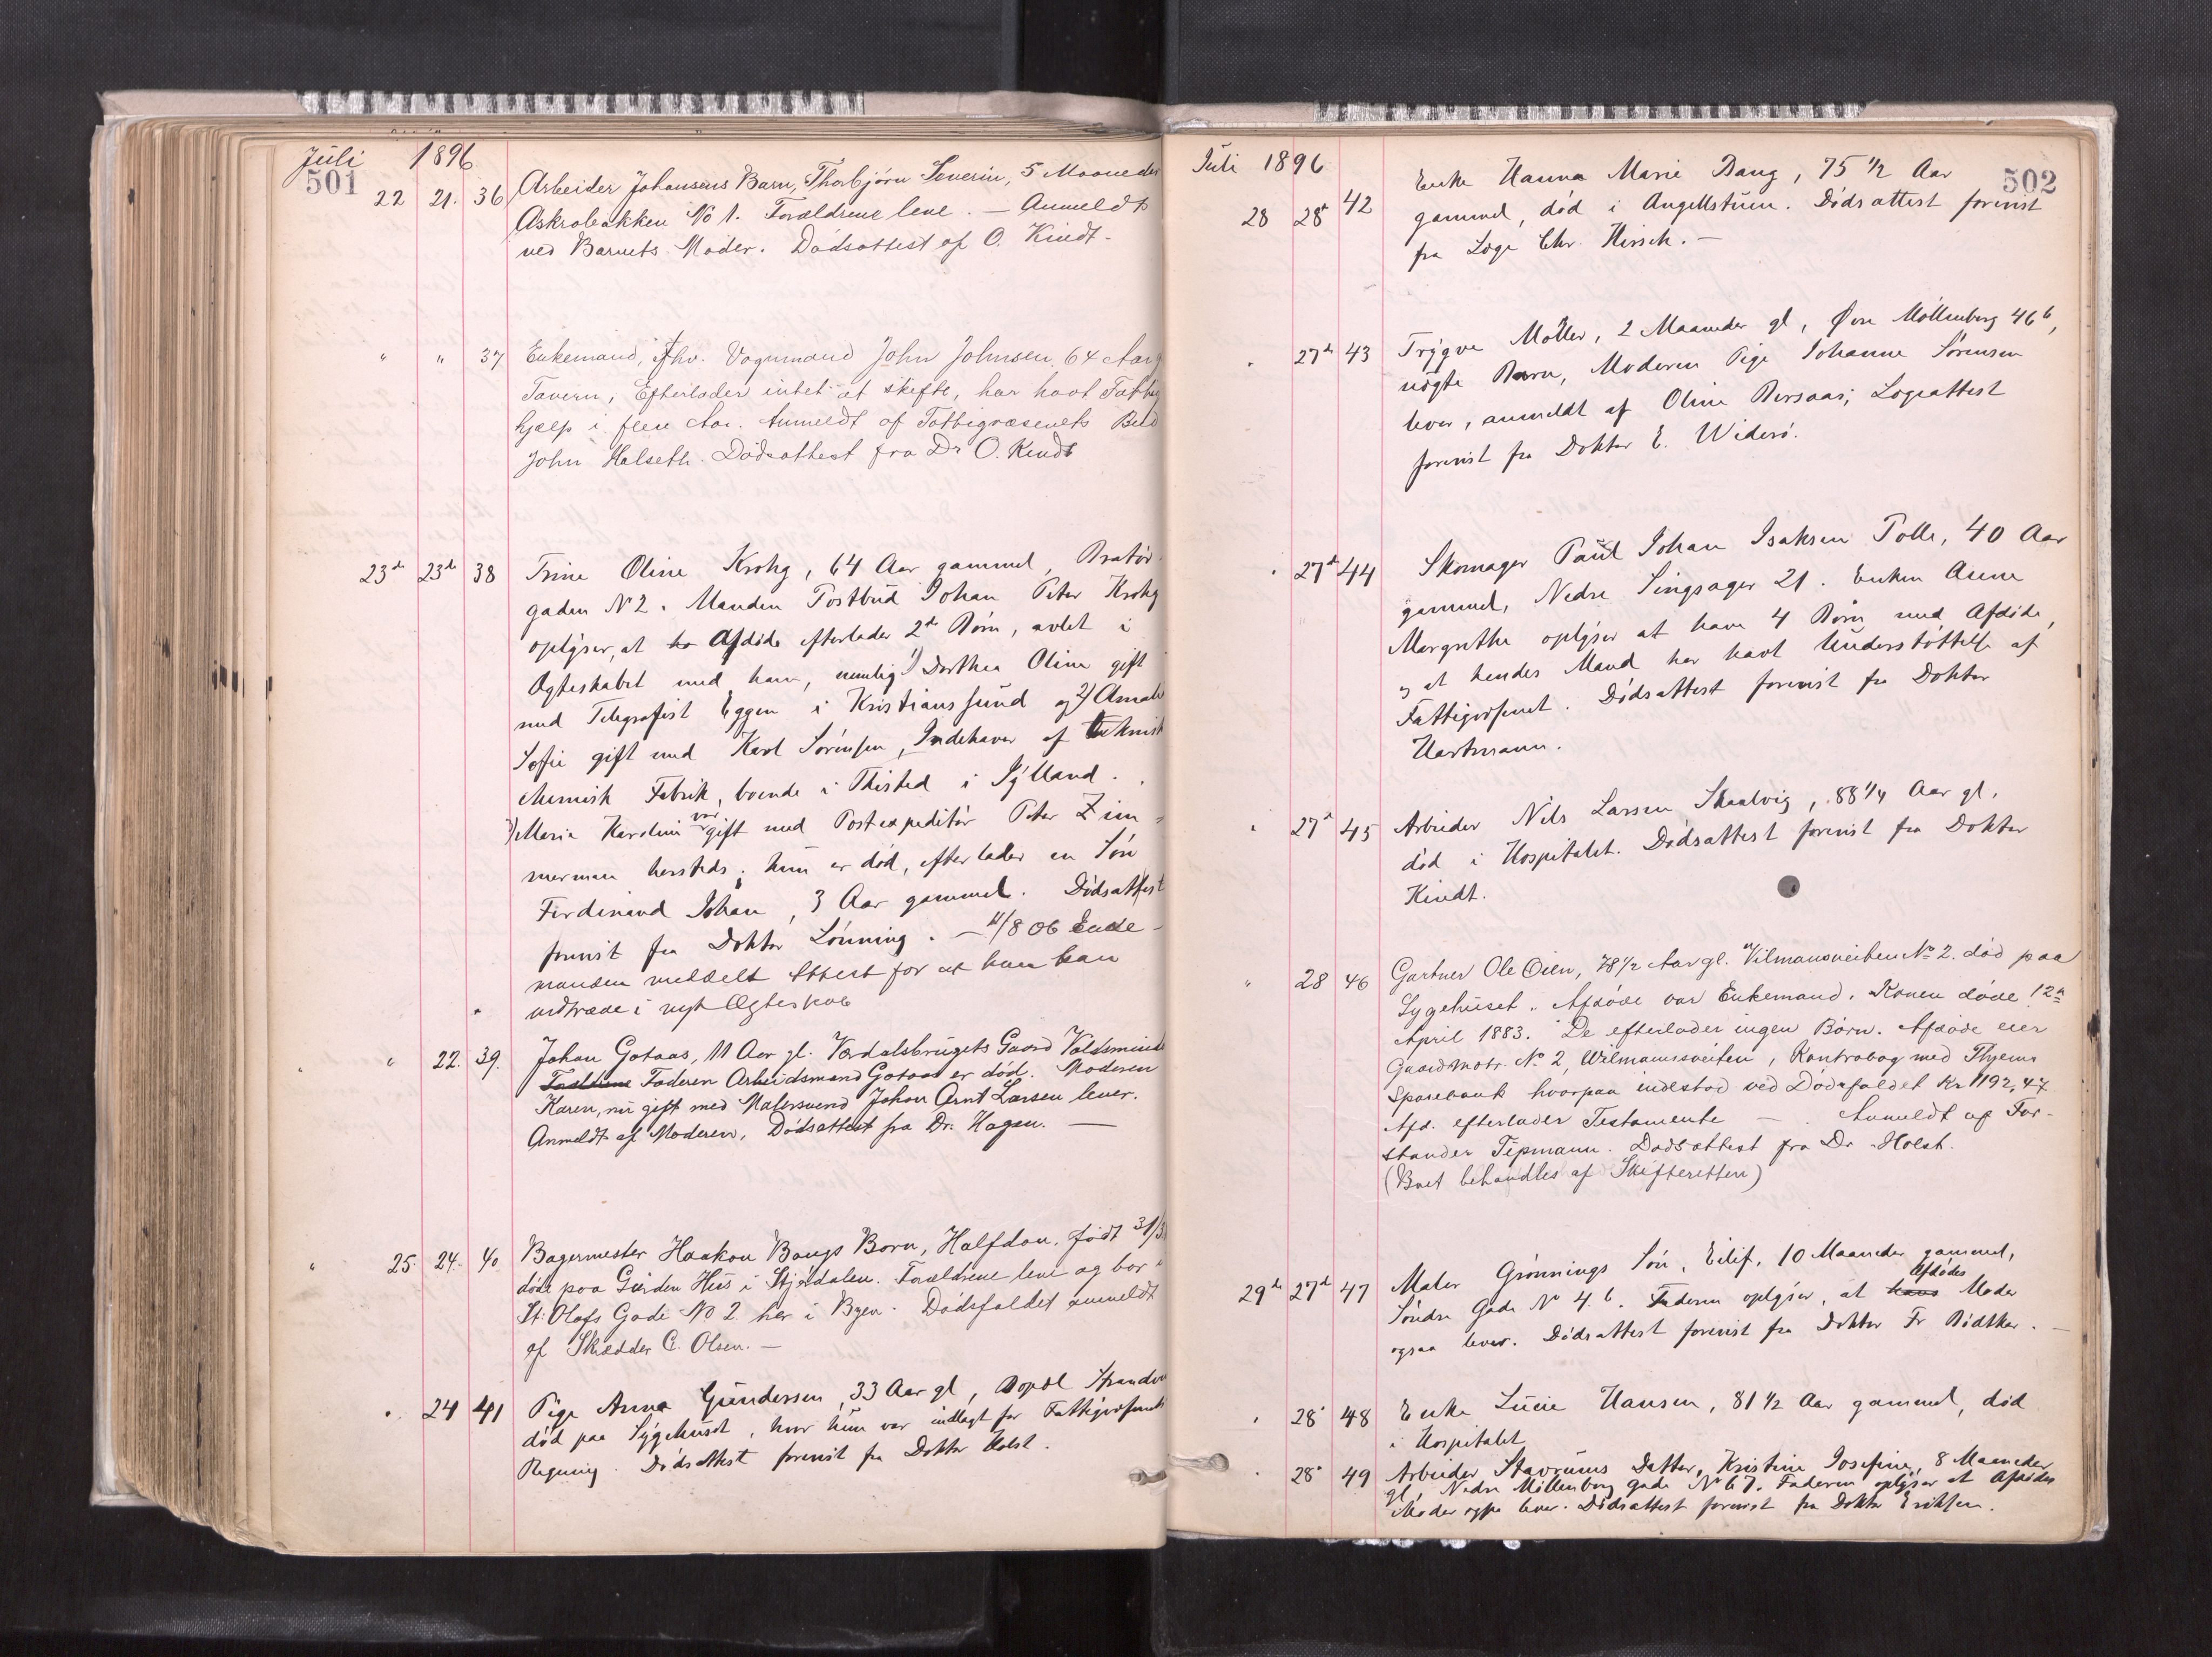 Juli 1896
501
22 21. 36 Arbeider Johansens Barn, Thorbjørn Severin, 5 Maaneder
Askrabakken No 1. Forældrene leve. — Anmeldt
ved Barnets Moder. Dødsattest af O. Kindt.
" " 37 Enkemand, fhv. Vognmand John Johnsen, 64 Aar g
Tavern, Efterlader intet at skifte, har havt Fattig
hjælp i flere Aar. Anmeldt af Fattigvæsenets Bud
John Halseth. Dødsattest fra Dr O. Kindt
23d 23d 38 Trine Oline Krohg, 64 Aar gammel, Bratør-
gaden No 2. Manden Postbud Johan Peter Krohg
oplyser, at Afdøde efterlader 2de Børn, avlet i
Ægteskabet med ham, nemlig 1) Dorthea Oline gift
med Telegrafist Eggen i Kristianssund og 2) Amalie
Sofie gift med Karl Sørensen, Indehaver af teknisk
chemisk Fabrik, boende i Thisted i Jylland.
3) Marie Karoline var gift med Postexpeditør Peter Zim-
merman hersteds; hun er død, efterlader en Søn
Ferdinand Johan, 3 Aar gammel. Dødsattest
forevist fra Doktor Lønning. — 11/8 06 Enke-
manden meddelt Attest for at han kan
indtræde i nyt Ægteskab
" 22. 39. Johan Gotaas, 11 Aar gl. Værdalsbrugets Gaard Valdsminde
Forældrene Faderen Arbeidsmand Gotaas er død. Moderen
Karen, nu gift med Malersvend Johan Arnt Larsen lever.
Anmeldt af Moderen, Dødsattest fra Dr. Hagen. —
" 25. 24. 40. Bagermester Haakon Bangs Barn, Halfdan, født 31/3
døde paa Gården Hus i Stjørdalen. Forældrene leve og bor i
St: Olafs Gade No 2 her i Byen. Dødsfaldet anmeldt
af Skrædder C. Olsen. —
" 24 41 Pige Anna Gundersen, 33 Aar gl, Bopæl
død paa Sygehuset, hvor hun var indlagt for Fattigvæsenets
Regning. Dødsattest forevist fra Doktor Holst.
Juli 1896
502
28 28d 42 Enke Hanna Marie Bang, 75 1/2 Aar
gammel, død i Angellstuen. Dødsattest forevist
fra Læge Chr. Hirsch. —
" 27d 43 Trygve Møller, 2 Maaneder gl, Øvre Møllenberg 46b,
uægte Barn, Moderen Pige Johanne Sørensen
lever, anmeldt af Oline Bersaas; Lægeattest
forevist fra Doktor E. Widerø.
" 27d 44 Skomager Paul Johan Isaksen Tolle, 40 Aar
gammel, Nedre Singsager 21. Enken Anne
Margrethe oplyser at have 4 Børn med Afdøde,
og at hendes Mand har havt Understøttelse af
Fattigvæsenet. Dødsattest forevist fra Doktor
Hartmann.
" 27d 45 Arbeider Nils Larsen Skaalvig, 88 1/4 Aar gl.
død i Hospitalet. Dødsattest forevist fra Doktor
Kindt.
" 28 46 Gartner Ole Øien, 78 1/2 Aar gl. Vilmansveiten No 2. død paa
Sygehuset. Afdøde var Enkemand. Konen døde 12te
April 1883. De efterlader ingen Børn. Afdøde eier
Gaard Matr. No 2, Wilmannsveiten, Kontrabog med Thjems
Sparebank hvorpaa indestod ved Dødsfaldet Kr 1192,47
Afd. efterlader Testamente — Anmeldt af For-
stander Tipmann. Dødsattest fra Dr Holst.
(Boet behandles af Skifteretten)
29d 27d 47 Maler Grønnings Søn, Eilif, 10 Maaneder gammel,
Søndre Gade No 4b. Faderen oplyser, at hans Afdødes Moder
ogsaa lever. Dødsattest forevist fra Doktor Fr Bødtker. —
" 28d 48 Enke Lucie Hansen, 81 1/2 Aar gammel, død
i Hospitalet
" 28d 49 Arbeider Stavrums Datter, Kristine Josefine, 8 Maaneder
gl, Nedre Møllenberg gade No 67. Faderen oplyser at Afdødes
Moder ogsaa lever. Dødsattest forevist fra Doktor Eriksen.